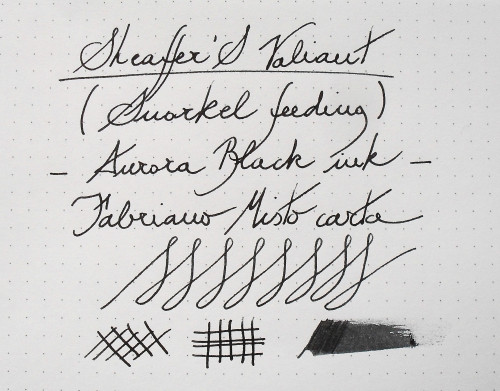 Sheaffer's Valiant
(Snorkel feeding)
- Aurora Black ink -
Fabriano Misto carta